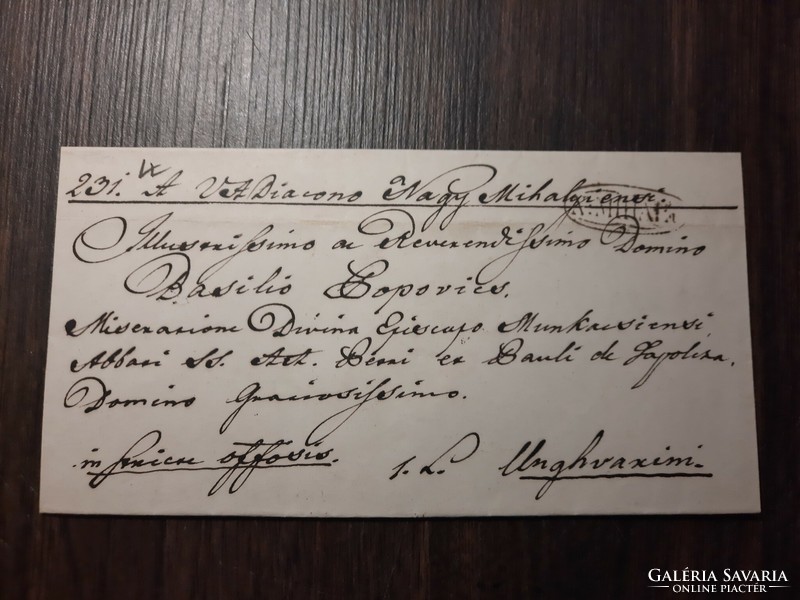 231. A VADiacono Nagy Mihalyiensi.
N. MIHÁLY
Illustrissimo ac Reverendissimo Domino
Basilio Popovics.
Miseratione Divina Episcopo Munkacsiensi,
Abbati SS. App. Petri et Pauli de Tapolcza.
Domino Gratiosissimo.
in officiosis.
Unghvarini.
GALÉRIA SAVARIA
ONLINE PIACTÉR